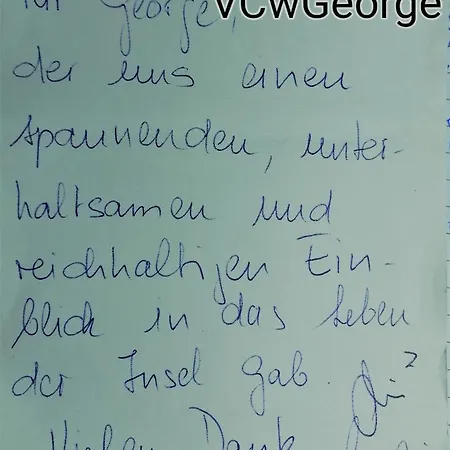 VCwGeorge
für George,
der uns einen
spannenden, unter-
haltsamen und
reichhaltigen Ein-
blick in das Leben
der Insel gab.
Vielen Dank